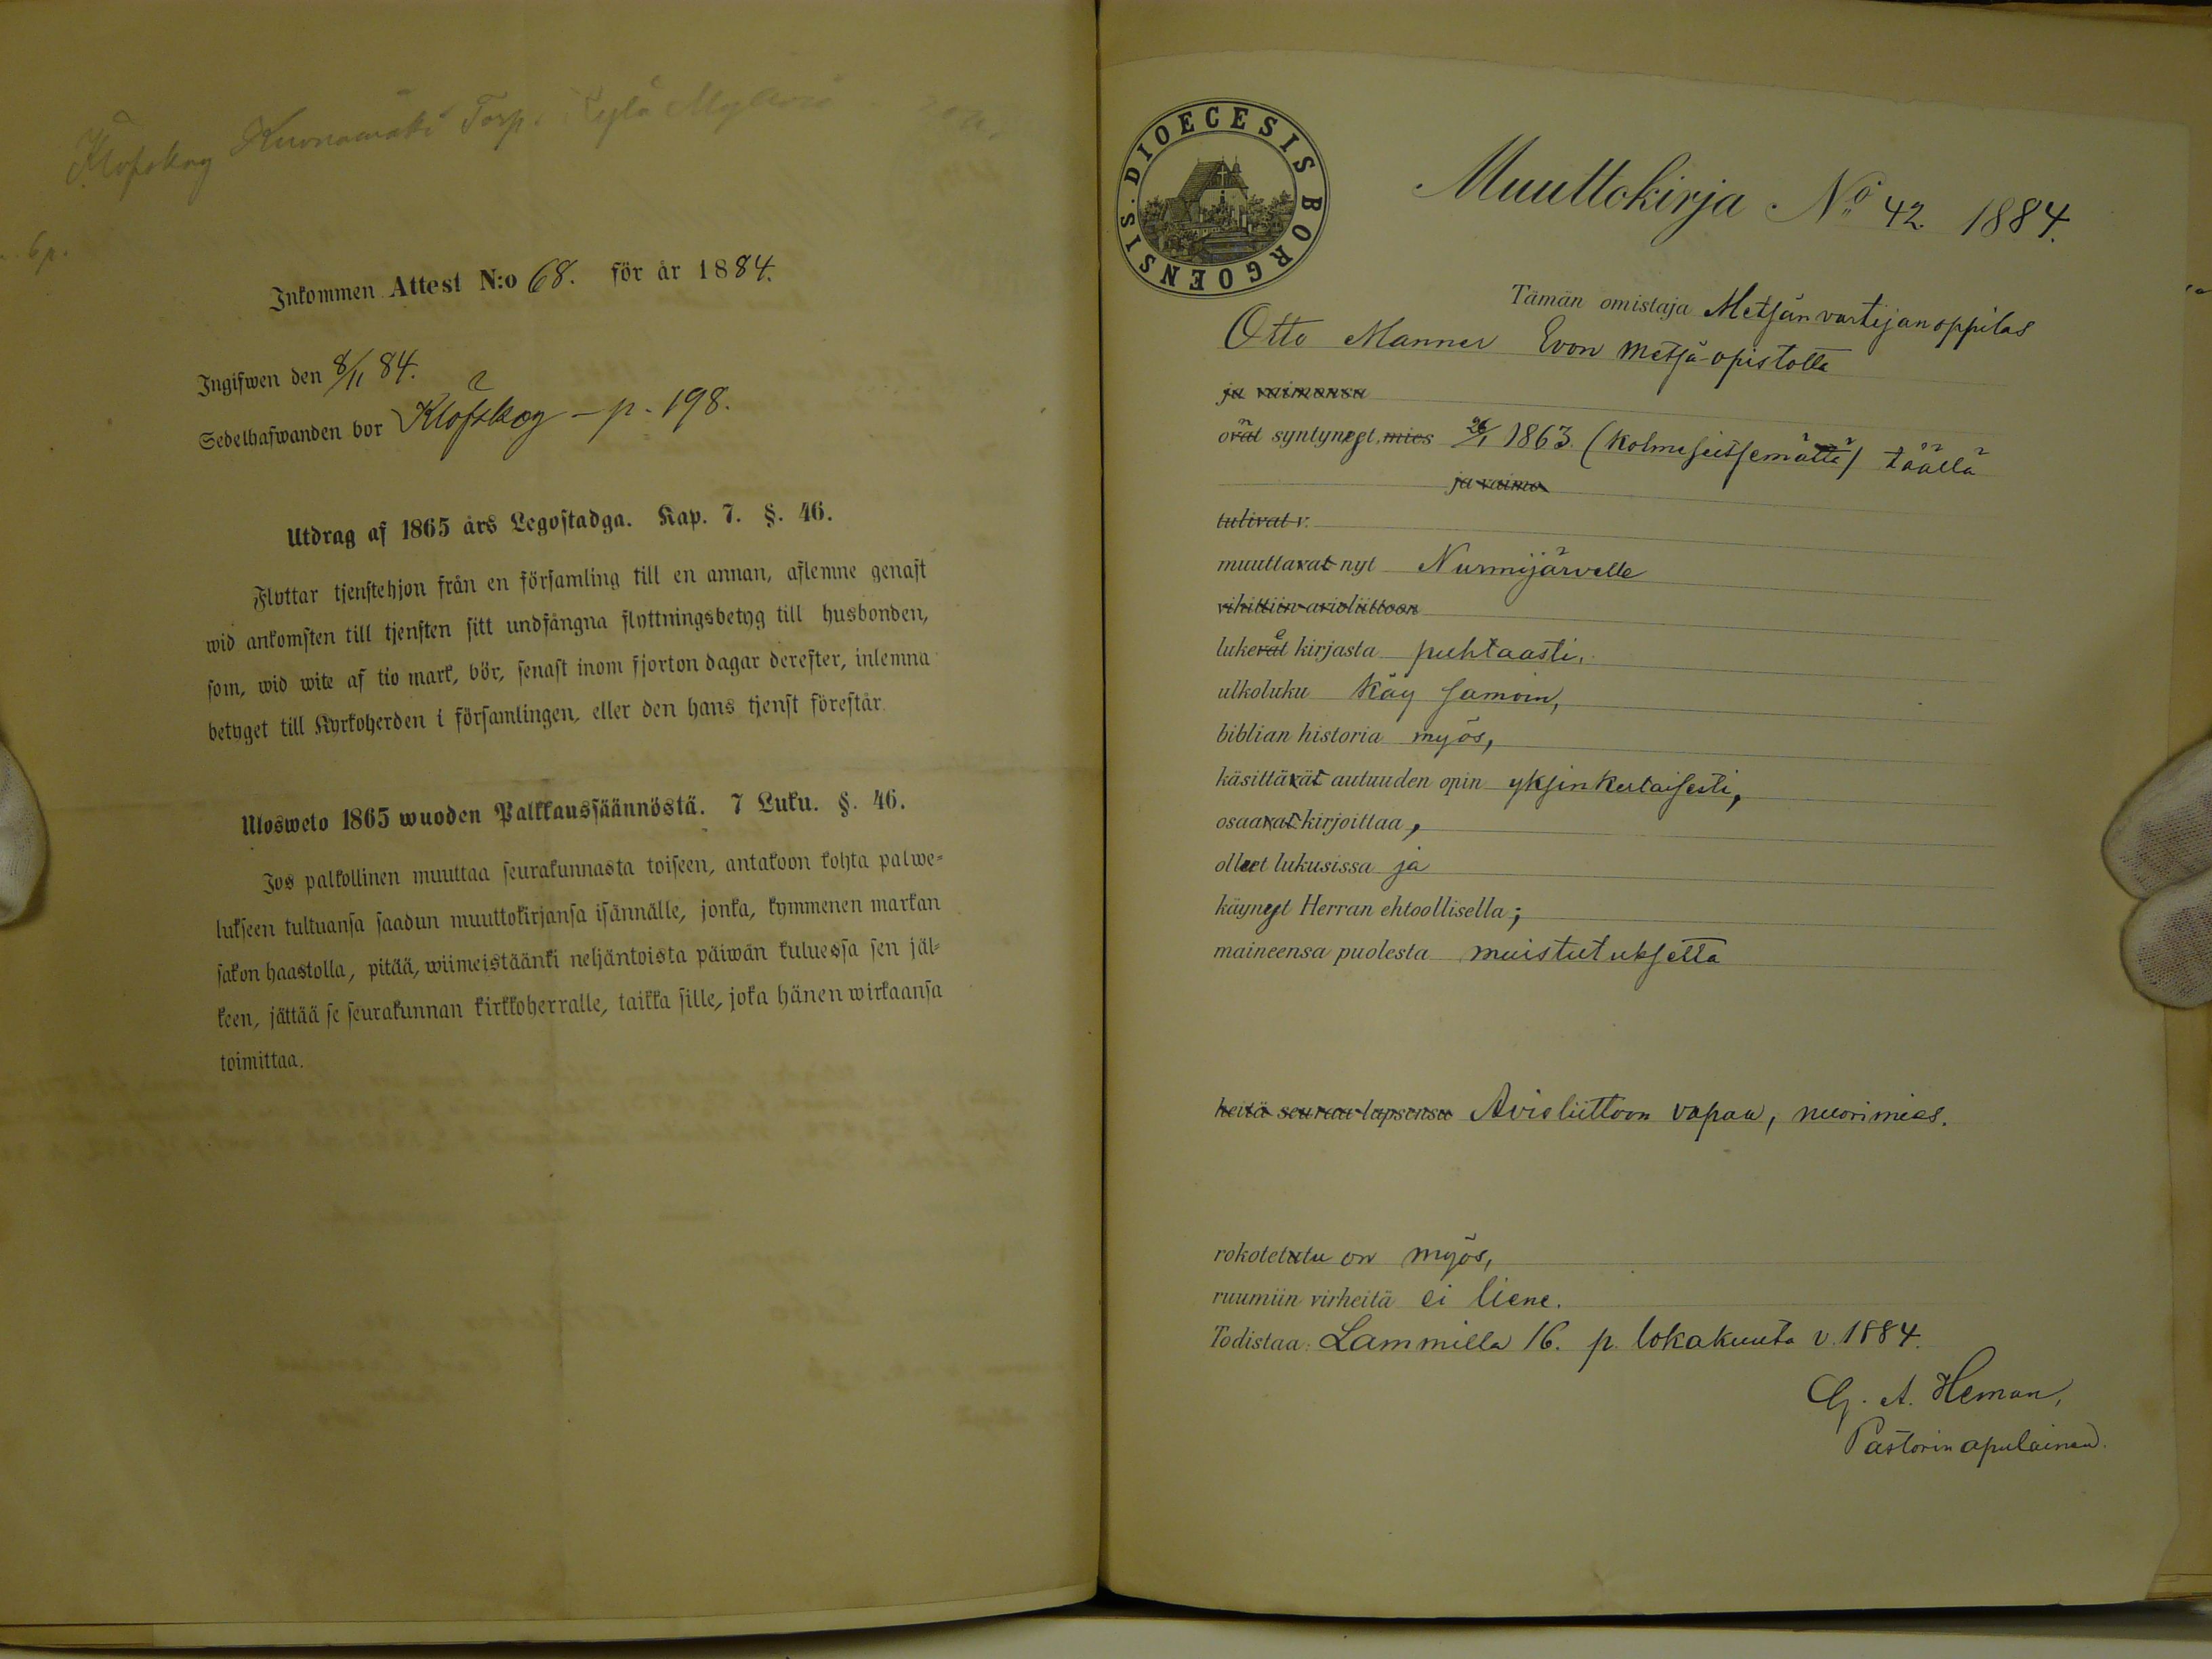 Klöfskog Kuonomäki Torp. Kylä
Inkommen Attest N:o 68. för år 1884.
Ingifwen den 8/11 84.
Sedelhafwanden bor Klöfskog - p. 198.
Utdrag af 1865 års Legostadga. Kap. 7. §. 46.
Flyttar tjenstehjon från en församling till en annan, aflemne genast
wid ankomsten till tjensten sitt undfångna flyttningsbetyg till husbonden,
som, wid wite af tio mark, bör, senast inom fjorton dagar derefter, inlemna
betyget till Kyrkoherden i församlingen, eller den hans tjenst förestår.
Ulosweto 1865 wuoden Palkkaussäännöstä. 7 Luku. §. 46.
Jos palkollinen muuttaa seurakunnasta toiseen, antakoon kohta palwe-
lukseen tultuansa saadun muuttokirjansa isännälle, jonka, kymmenen markan
sakon haastolla, pitää, wiimeistäänki neljäntoista päiwän kuluessa sen jäl-
keen, jättää se seurakunnan kirkkoherralle, taikka sille, joka hänen wirkaansa
toimittaa.
DIOECESIS BORGOENSIS.
Muuttokirja No 42 1884.
Tämän omistaja Metsänvartijanoppilas
Otto Manner Evon metsä-opistolta
ja vaimonsa
ovat syntynyt, mies 26/1 1863. (kolmeseitsemättä) täällä
ja vaimo
tulivat v.
muuttavat nyt Nurmijärvelle
vihittiin avioliittoon
lukevat kirjasta puhtaasti,
ulkoluku käy samoin,
biblian historia myös,
käsittävät autuuden opin yksinkertaisesti,
osaavat kirjoittaa,
olleet lukusissa ja
käynyt Herran ehtoollisella;
maineensa puolesta muistutuksetta
heitä seuraa lapsensa Avioliittoon vapaa, nuorimies.
rokotettu on myös,
ruumiin virheitä ei liene.
Todistaa: Lammilla 16. p. lokakuuta v. 1884.
G. A. Heman,
Pastorin apulainen.